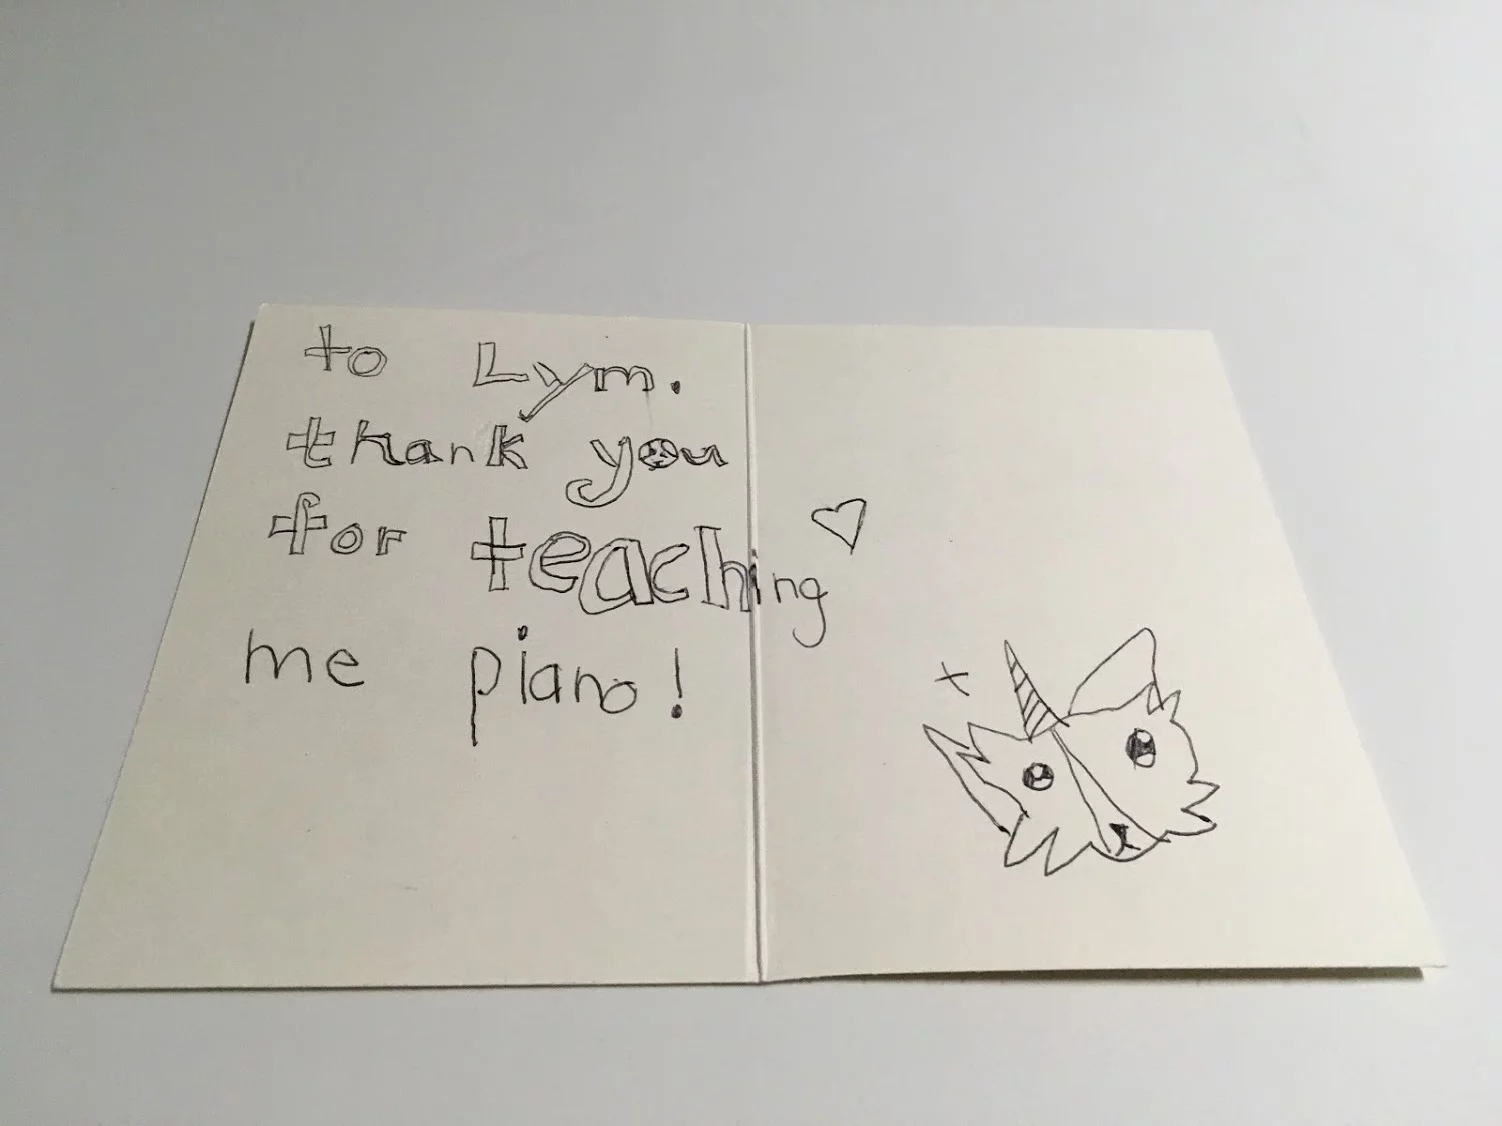 to Lym.
thank you
for teaching
me piano!